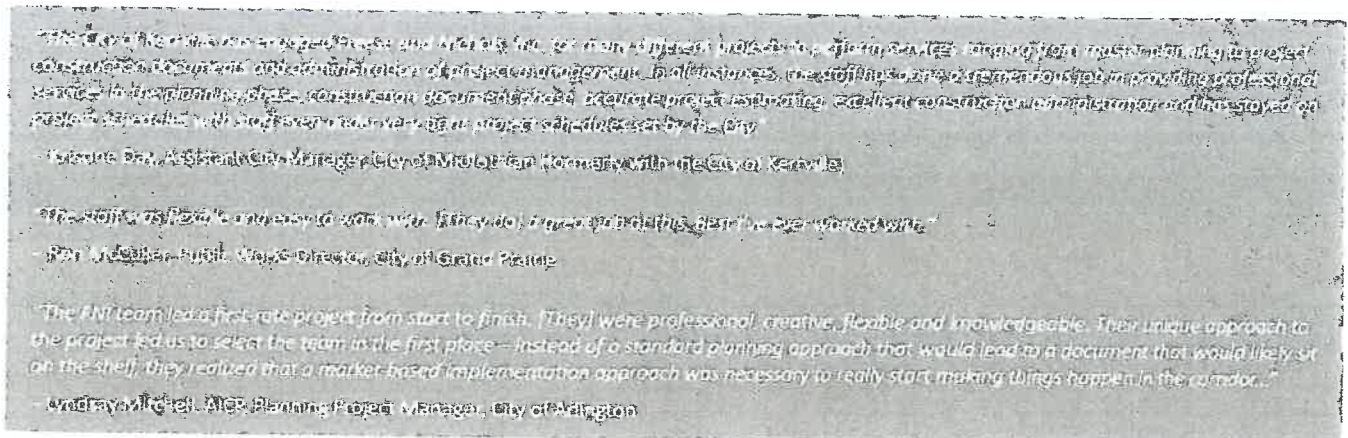 "The City of Kerrville has engaged Freese and Nichols, Inc. for many different projects to perform services ranging from master planning to project
construction documents and administration of project management. In all instances, the staff has done a tremendous job in providing professional
service in the planning phase, construction document phase, accurate project estimating, excellent construction administration and has stayed on
project schedules with staff even under very tight project schedules set by the City."
- Kristine Day, Assistant City Manager, City of Midlothian (formerly with the City of Kerrville)
"The staff was flexible and easy to work with. [They do] a great job at this. Best I've ever worked with."
- Ron McCuller, Public Works Director, City of Grand Prairie
"The FNI team led a first-rate project from start to finish. [They] were professional, creative, flexible and knowledgeable. Their unique approach to
the project led us to select the team in the first place – instead of a standard planning approach that would lead to a document that would likely sit
on the shelf, they realized that a market-based implementation approach was necessary to really start making things happen in the corridor..."
- Lyndsay Mitchell, AICP, Planning Project Manager, City of Arlington